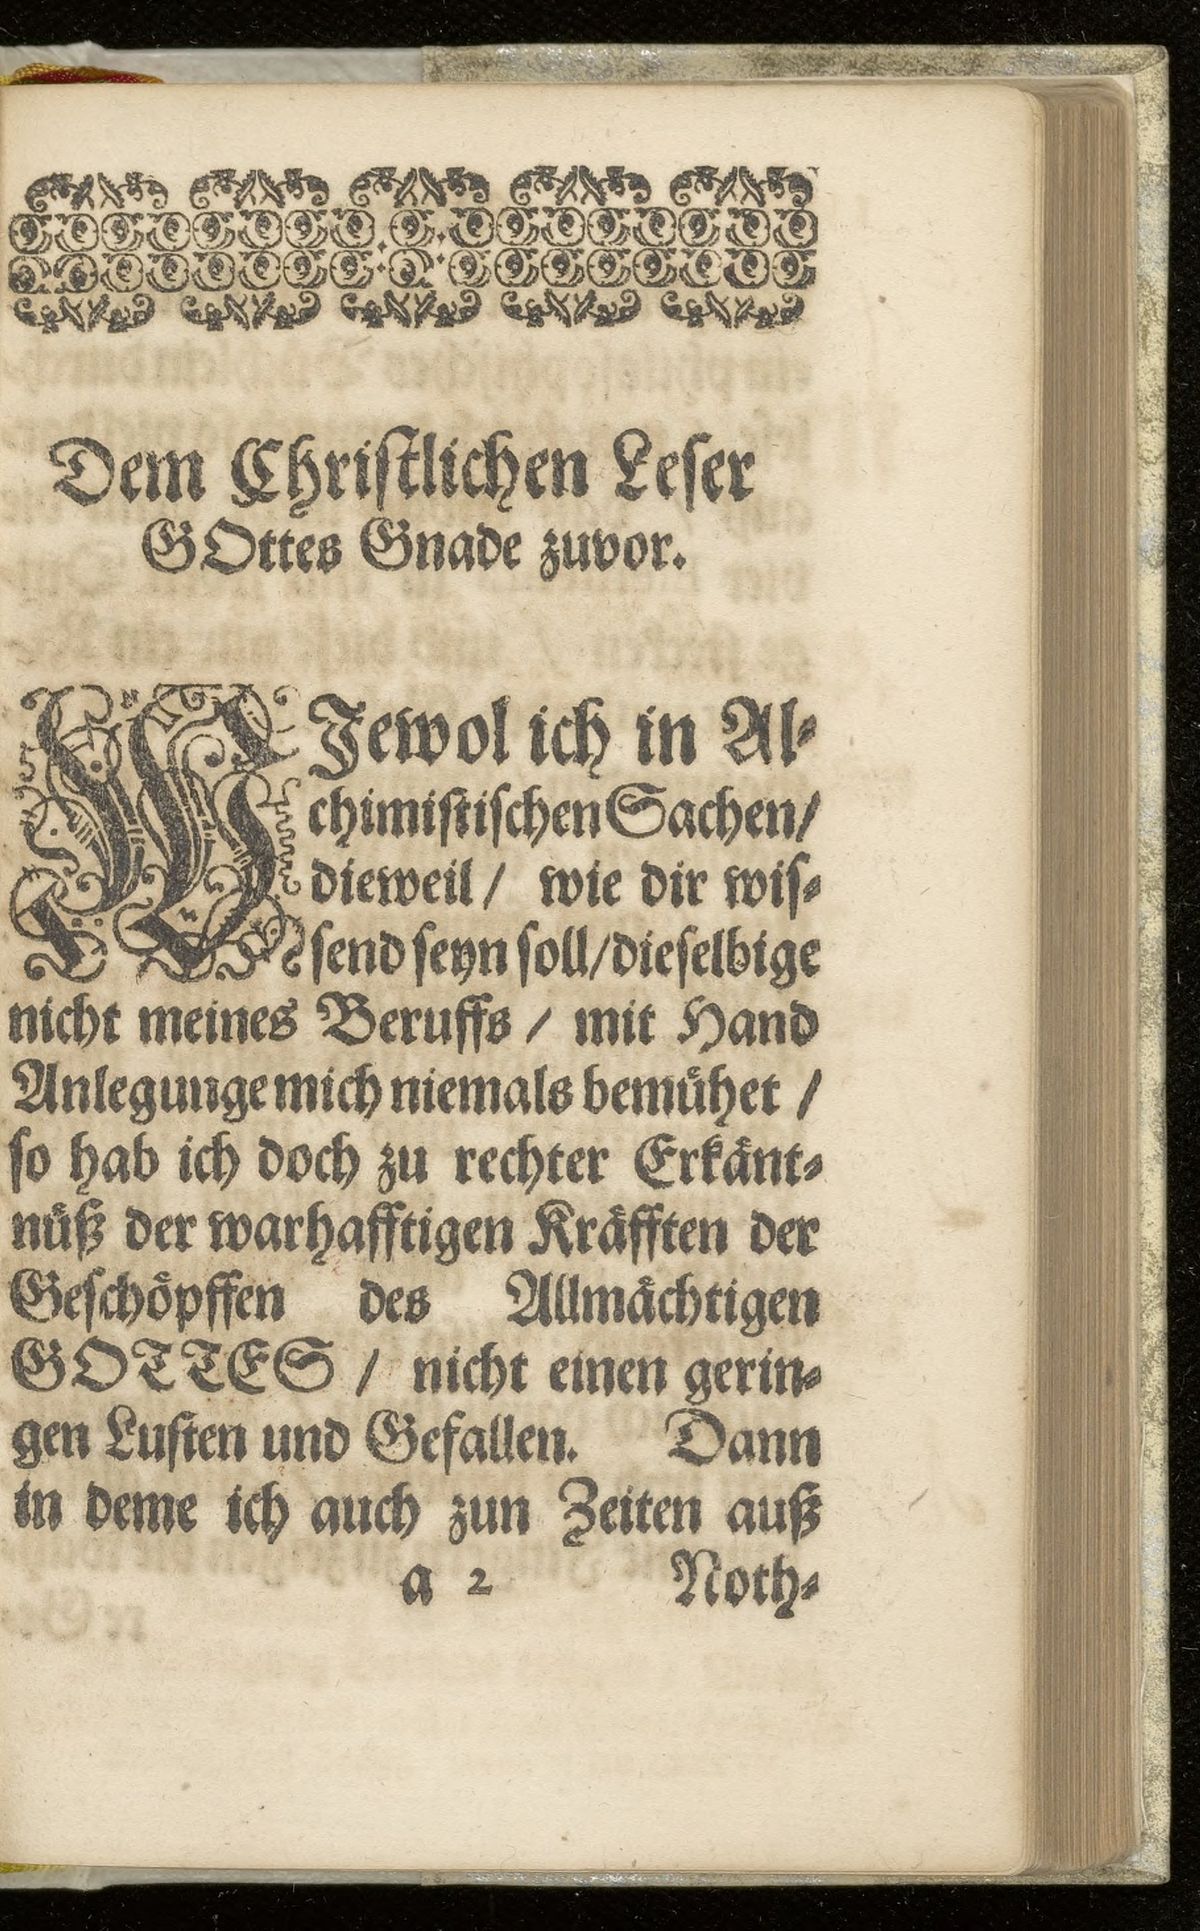 Dem Christlichen Leser
GOttes Gnade zuvor.
WJewol ich in Al⸗
chimistischen Sachen/
dieweil / wie dir wis⸗
send seyn soll/dieselbige
nicht meines Beruffs / mit Hand
Anlegunge mich niemals bemühet /
so hab ich doch zu rechter Erkänt⸗
nüß der warhafftigen Kräfften der
Geschöpffen des Allmächtigen
GOTTES / nicht einen gerin⸗
gen Lusten und Gefallen. Dann
in deme ich auch zun Zeiten auß
a 2 Noth⸗